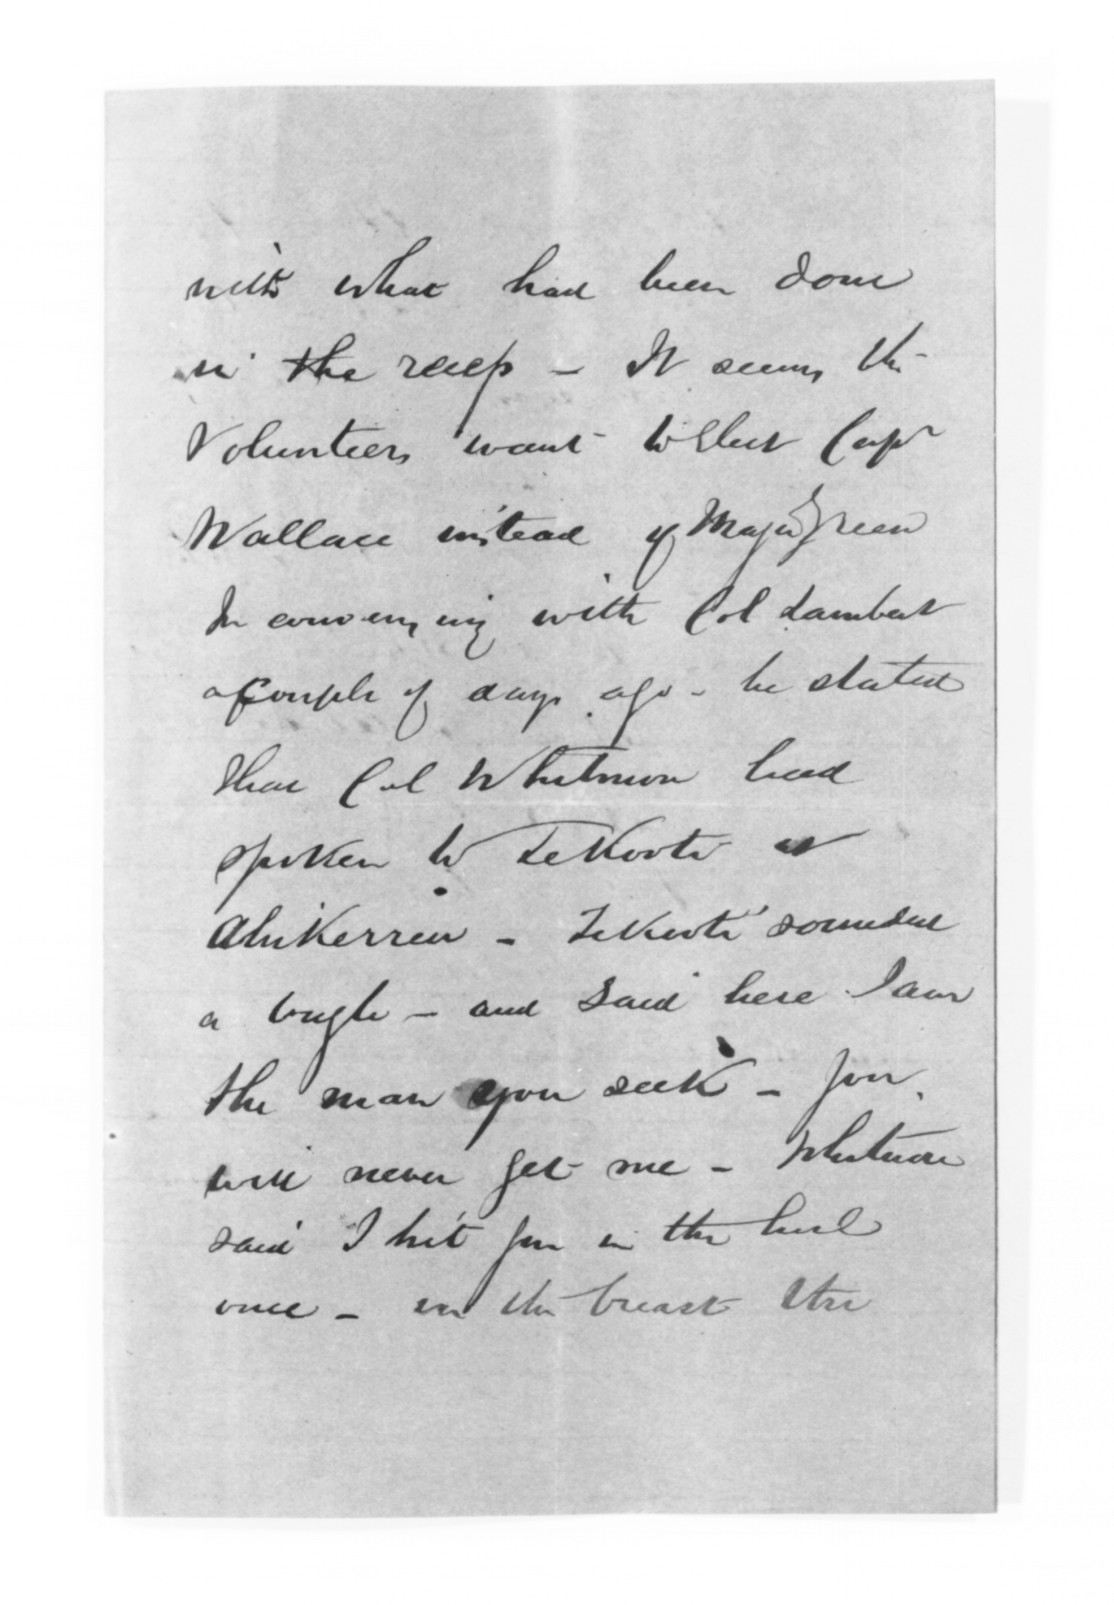 with what had been done
in the — It seems the
Volunteers want to Elect Capt
Wallace instead of Major Green
In conversing with Col Lambert
a couple of days ago - he stated
that Col Whitmore had
spoken to TeKooti at
Ahikerreru - TeKooti sounded
a bugle - and said here I am
the man you seek - you
will never get me - Whitmore
said I hit you in the heel
once - in the breast the